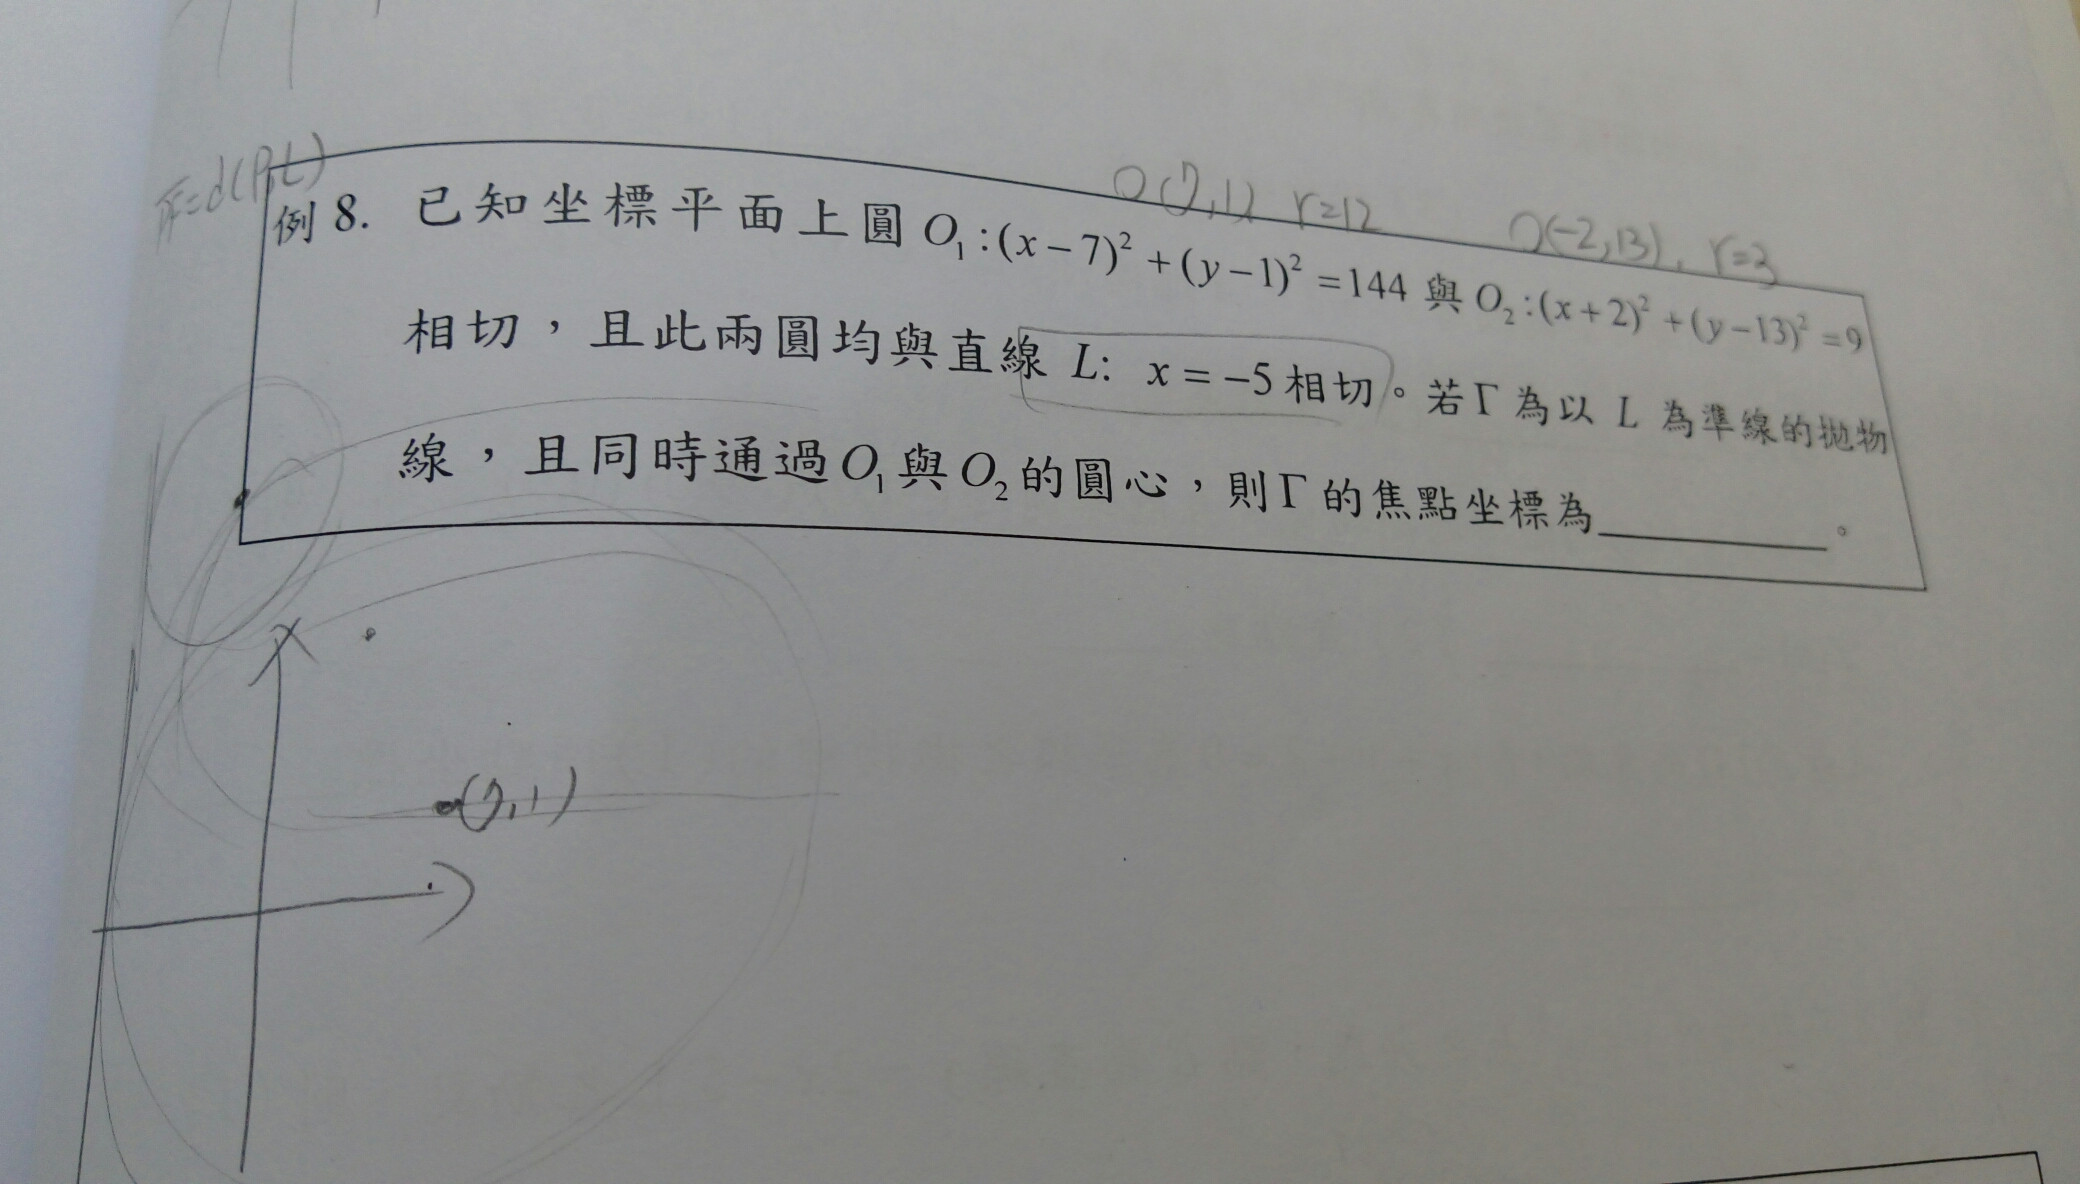 =d(P,L)
O(7,1) r=12
O(-2,13), r=3
例8. 已知坐標平面上圓 O₁:(x−7)²+(y−1)²=144 與 O₂:(x+2)²+(y−13)²=9
相切，且此兩圓均與直線 L: x=−5 相切。若Γ為以 L 為準線的拋物
線，且同時通過O₁與O₂的圓心，則Γ的焦點坐標為________。
(7,1)